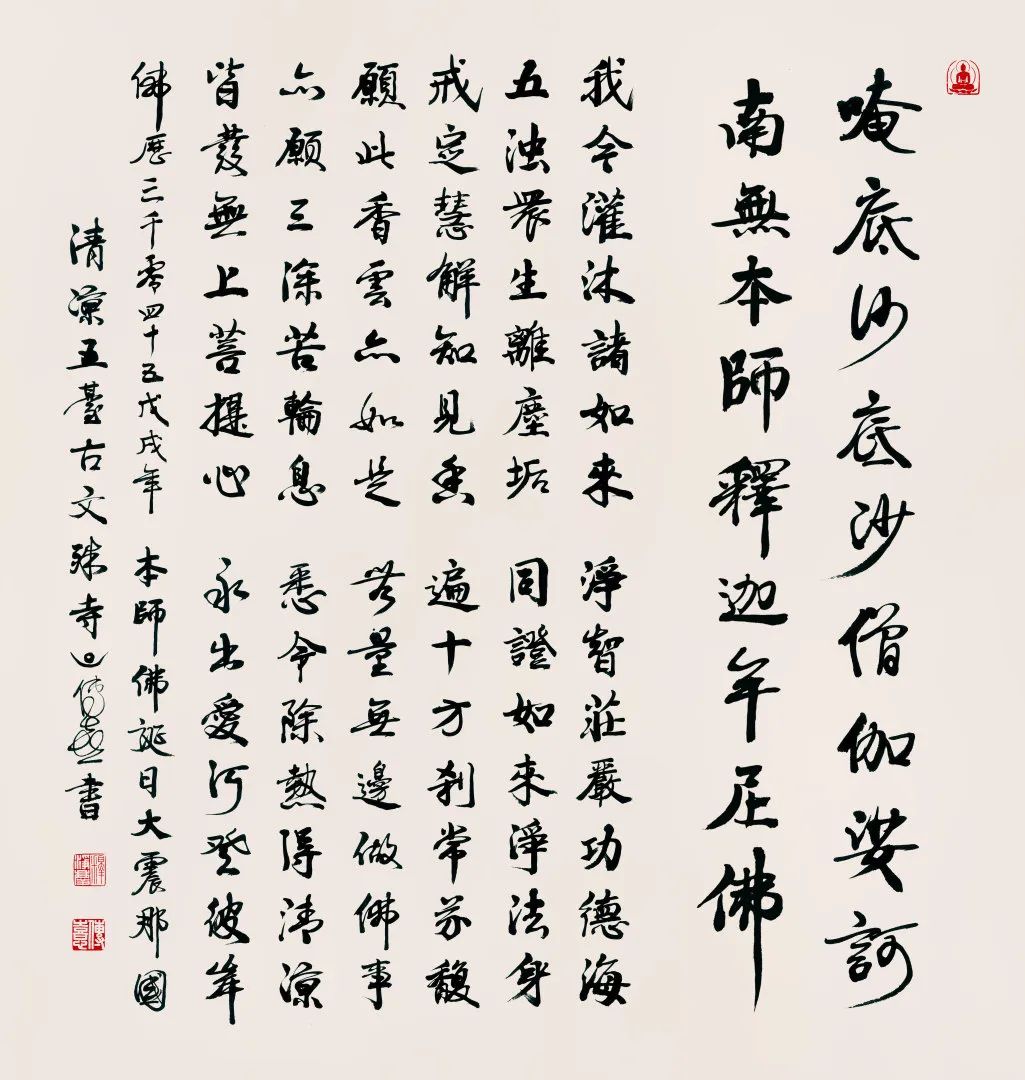 唵底沙底沙僧伽娑訶
南無本師釋迦牟尼佛
我今灌沐諸如來 淨智莊嚴功德海
五浊眾生離塵垢 同證如來淨法身
戒定慧解知見香 遍十方刹常芬馥
願此香雲亦如是 无量無邊做佛事
亦願三涂苦輪息 悉令除熱得清涼
皆發無上菩提心 永出愛河登彼岸
佛歷三千零四十五戊戌年 本師佛誕日大震那國
清涼五臺古文殊寺 書